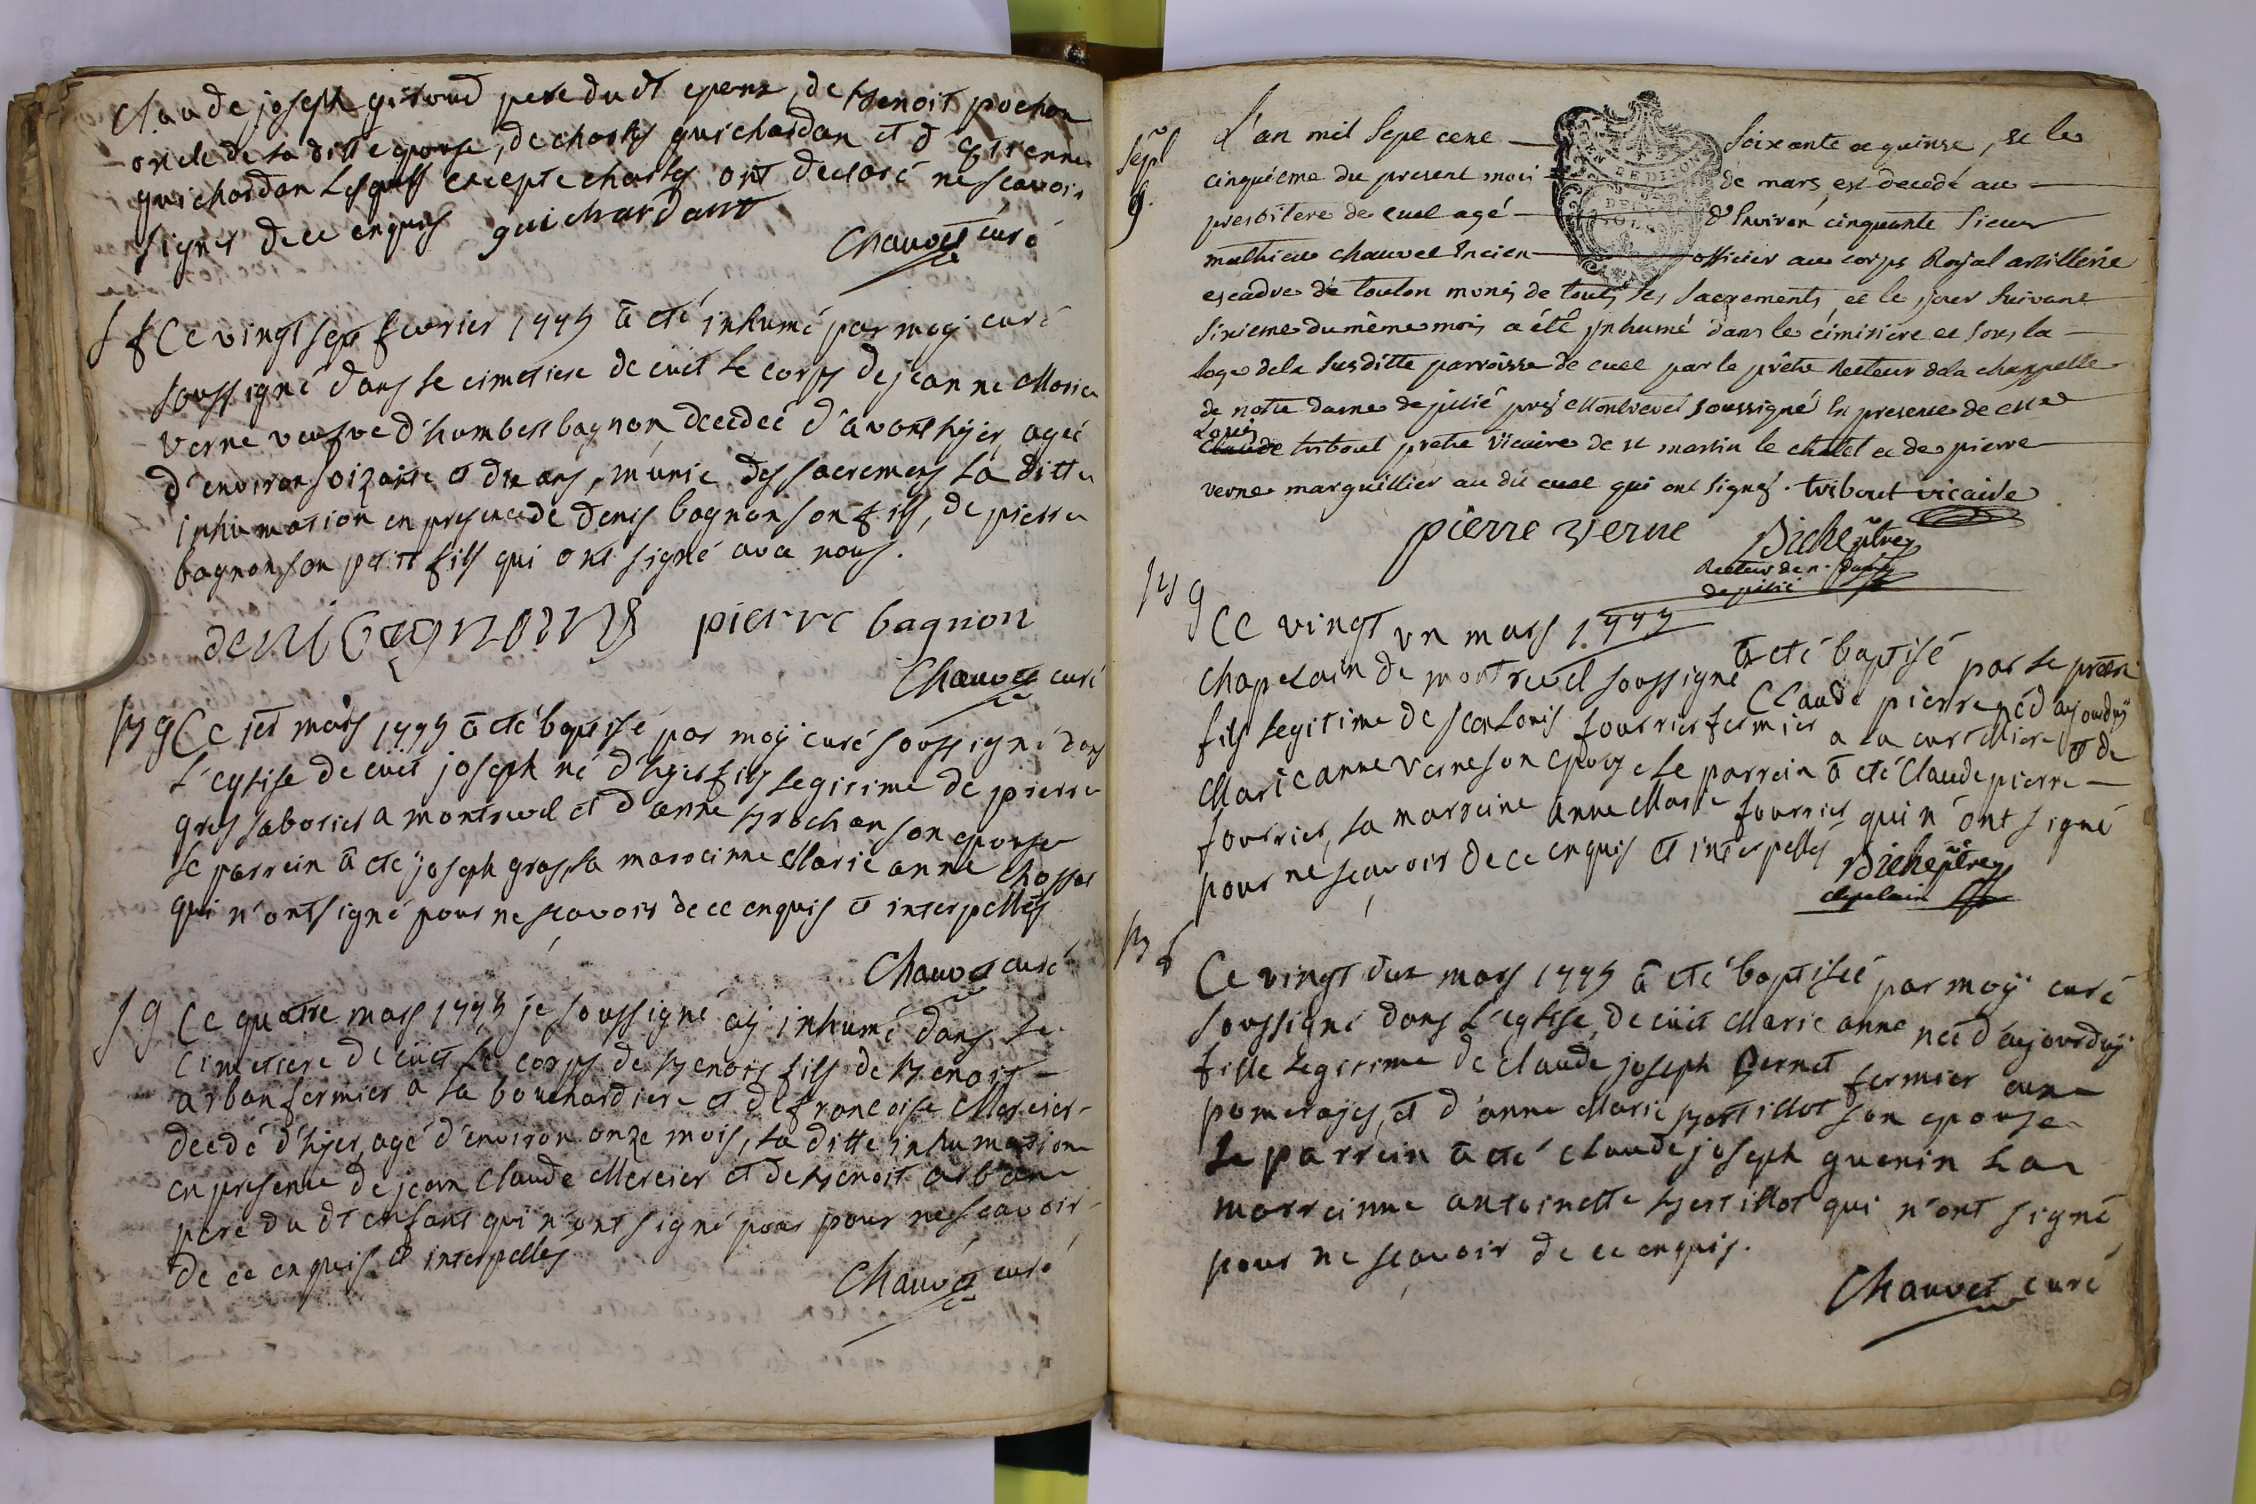 Claude joseph giroud pere du dt epoux, de Benoit pochon
oncle de la ditte epouse, de charles guichardan et d'Etienne
guichardan lesquels excepte charles ont declaré ne scavoir
signer de ce enquis guichardant
Chauvet curé
S f Ce vingt sept fevrier 1775 a été inhumé par moy curé
soussigné dans le cimetiere de cuet le corps de jeanne Marie
verne veufve d'humbert bagnon decedeé d'avant hyer, ageé
d'environ soizante et dix ans, munie des sacremens la ditte
inhumation en presence de denis bagnon son fils, de pierre
bagnon son petit fils qui ont signé avec nous.
deni bagnon pierre bagnon
Chauvet curé
B g Ce 1er mars 1775 a eté baptisé par moy curé soussigné dans
L'eglise de cuet joseph né d'hyer fils legitime de pierre
gros sabotier a montrevel et d'anne Brochan son epouse
le parrein a eté joseph gros, la marreinne Marie anne
qui n'ont signé pour ne scavoir de ce enquis et interpellés
Chauvet curé
S g Ce quatre mars 1775 je soussigné ay inhumé dans le
cimetiere de cuet le corps de Benoit fils de Benoit
arban fermier a la bouchardiere et de francoise Mercier
decedé d'hyer, agé d'environ onze mois, la ditte inhumation
en presence de jean Claude Mercier et de Benoit arban
pere du dt enfant qui n'ont signé pour pour ne scavoir
de ce enquis et interpellés
Chauvet curé
Sepl
g.
L'an mil Sept cent soixante et quinse, et le
cinquieme du present mois de mars, est decedé au
presbitere de cuet agé d'Environ cinquante Sieur
mathieu chauvet Encien officier au corps Royal artillerie
escadre de toulon munis de touts les Sacrements, et le jour Suivant
Sixieme du même mois a été jnhumé dans le cimitiere et sous la
loge dela Susditte parroisse de cuet par le prêtre Recteur dela chappelle
de notre dame de pitié prés Montrevel soussigné En presence de Mre
Louis
Claude tribout prêtre Vicaire de st martin le chatel et de pierre
verne marguillier au dit cuet qui ont signés. tribout vicaire
pierre verne Biche ptre
Recteur de n. dame
de pitié
B g Ce vingt un mars 1775 a eté baptisé par le pretre
chapelain de montrevel soussigné Claude pierre né d'ajourduy
fils legitime de Louis fourrier fermier a la et de
Marie anne Verne son epouse le parrein a eté Claude pierre
fourrier, la marreine anne Marie fourrier qui n'ont signé
pour ne scavoir de ce enquis et interpellés Biche ptre
chapelain
B f
Ce vingt deux mars 1775 a eté baptiseé par moy curé
soussigné dans L'eglise de cuet Marie anne neé d'ajourduy
fille legitime de claude joseph Pernet fermier aux
pomerayes, et d'anne Marie Bertillot son epouse
Le parrein a eté claude joseph guenin La
marreinne antoinette Bertillot qui n'ont signé
pour ne scavoir de ce enquis.
Chauvet curé